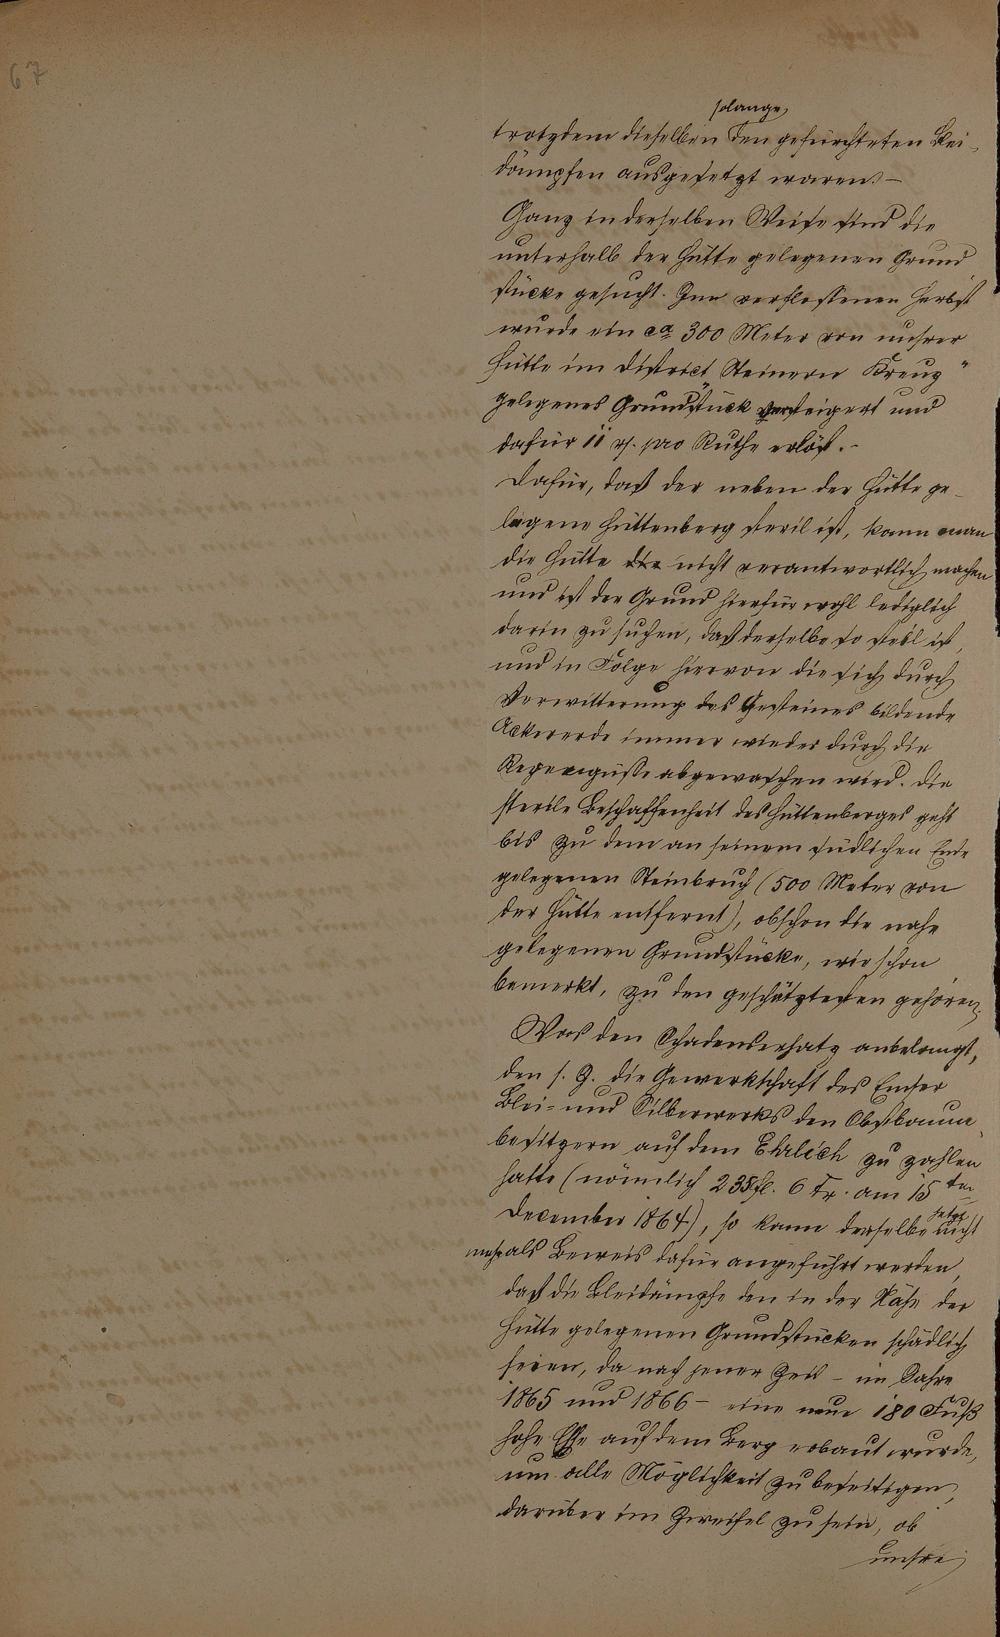 67
solange
trotzdem dieselben den gefürchteten Blei-
dämpfen ausgesetzt waren. –
Ganz in derselben Weise sind die
unterhalb der Hütte gelegenen Grund
stücke gesucht. Im verflossenen Herbst
wurde ein ca 300 Meter von unsrer
Hütte im District „Steinern Kreuz“
gelegenes Grundstück versteigert und
dafür 11 rf. pro Ruthe erlöst. –
Dafür, daß der neben der Hütte ge-
legene Hüttenberg steril ist, kann man
die Hütte die nicht verantwortlich machen
und ist der Grund hierfür wohl lediglich
darin zu suchen, daß derselbe so steil ist,
und in Folge hiervon die sich durch
Verwitterung des Gesteines bildende
Ackererde immer wieder durch die
Regengüsse abgewaschen wird. Die
sterile Beschaffenheit des Hüttenberges geht
bis zu dem an seinem südlichen Ende
gelegenen Steinbruch (500 Meter von
der Hütte entfernt), obschon die nahe
gelegenen Grundstücke, wie schon
bemerkt, zu den geschätztesten gehören.
Was den Schadensersatz anbelangt,
den s. Z. die Gewerkschaft des Emser
Blei- und Silberwerks den Obstbaum-
besitzern auf dem Ehrlich zu zahlen
hatte (nämlich 235 fl. 6 Kr. am 15ten
December 1864), so kann derselbe jetzt nicht
mehr als Beweis dafür angeführt werden,
daß die Bleidämpfe den in der Nähe der
Hütte gelegenen Grundstücken schädlich
seien, da nach jener Zeit – im Jahre
1865 und 1866 – eine neue 180 Fuß
hohe Esse auf dem Berg erbaut wurde,
um alle Möglichkeit zu beseitigen,
darüber im Zweifel zu sein, ob
unsre